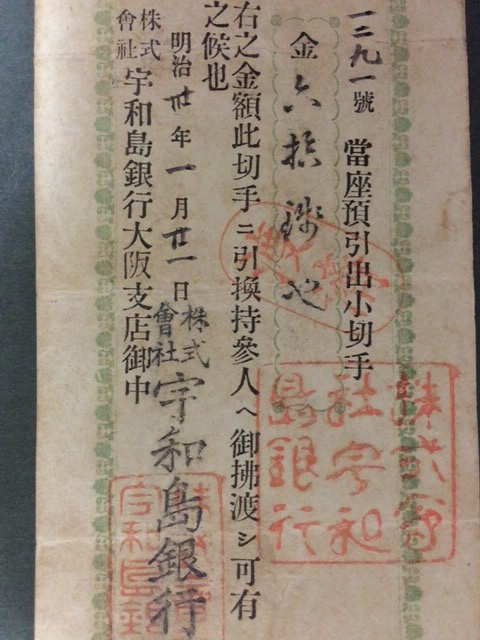 一二九一號 當座預引出小切手
金六拾錢也
右之金額此切手ニ引換持參人へ御拂渡シ可有
之候也
明治卅年一月廿一日
株式會社宇和島銀行
株式會社宇和島銀行大阪支店御中
株式會
社宇和
島銀行
宇和島銀